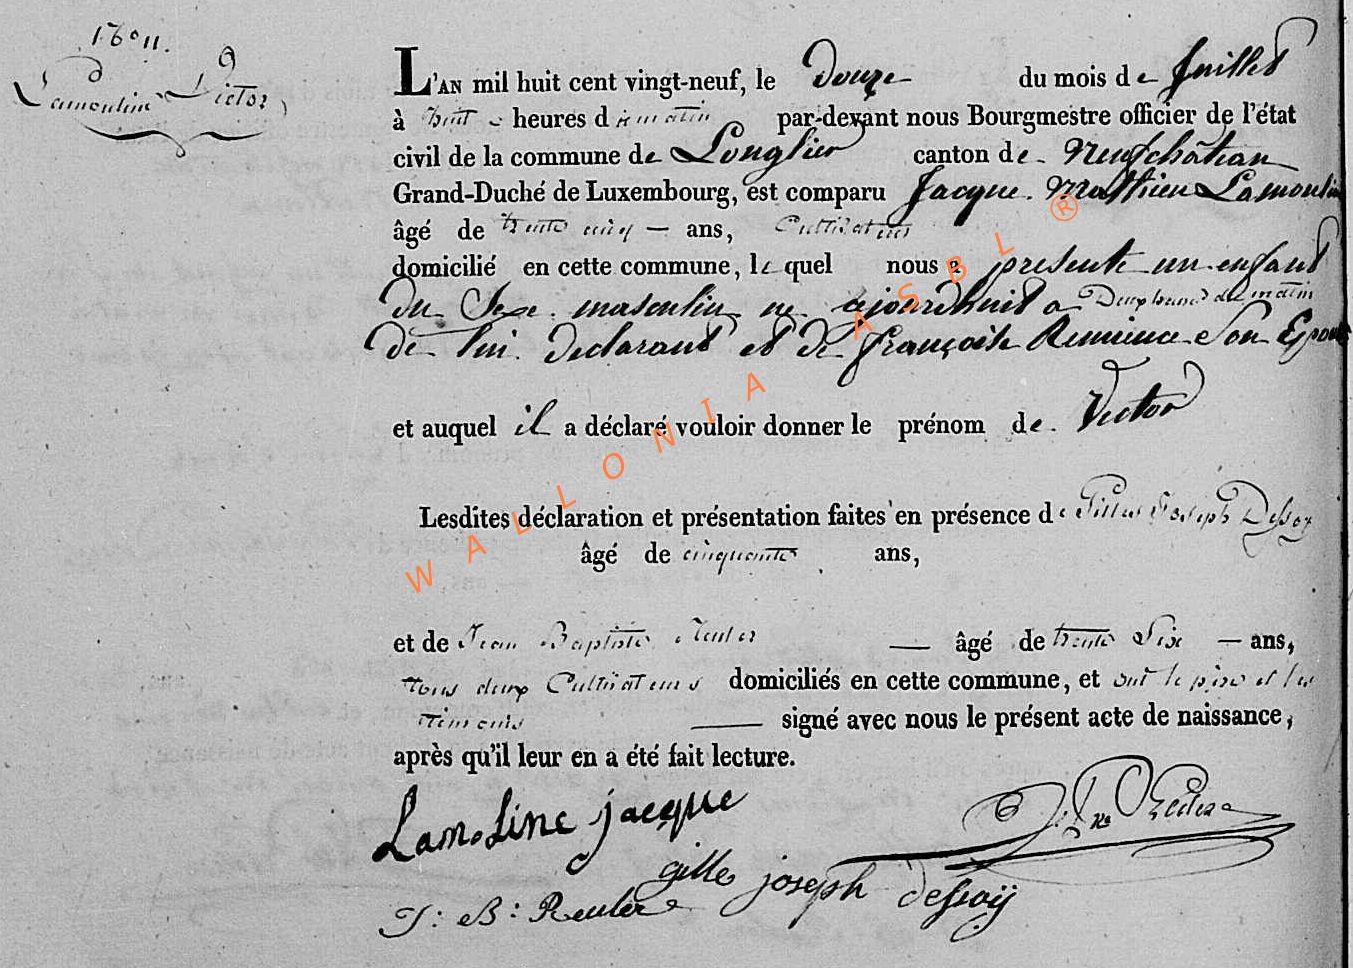 Lamouline Victor
L'AN mil huit cent vingt-neuf, le douze du mois de Juillet
à huit heures du matin par-devant nous Bourgmestre officier de l'état
civil de la commune de Longlier canton de Neufchâteau
Grand-Duché de Luxembourg, est comparu Jacque Mathieu Lamoulin
âgé de trente cinq ans, Cultivateur
domicilié en cette commune, le quel nous a présenté un enfant
du Sexe masculin né ajourdhuit a Deux heures du matin
de lui déclarant et de françoise son Epouse
et auquel il a déclaré vouloir donner le prénom de Victor
Lesdites déclaration et présentation faites en présence de Gilles Joseph Dessoy
âgé de cinquante ans,
et de Jean Baptiste Reuler âgé de trente Six ans,
tous deux Cultivateurs domiciliés en cette commune, et ont le père et les
témoins signé avec nous le présent acte de naissance,
après qu'il leur en a été fait lecture.
Lamoline jacque
gille joseph dessoÿ
J: B: Reuler
WALLONIA ASBL ®